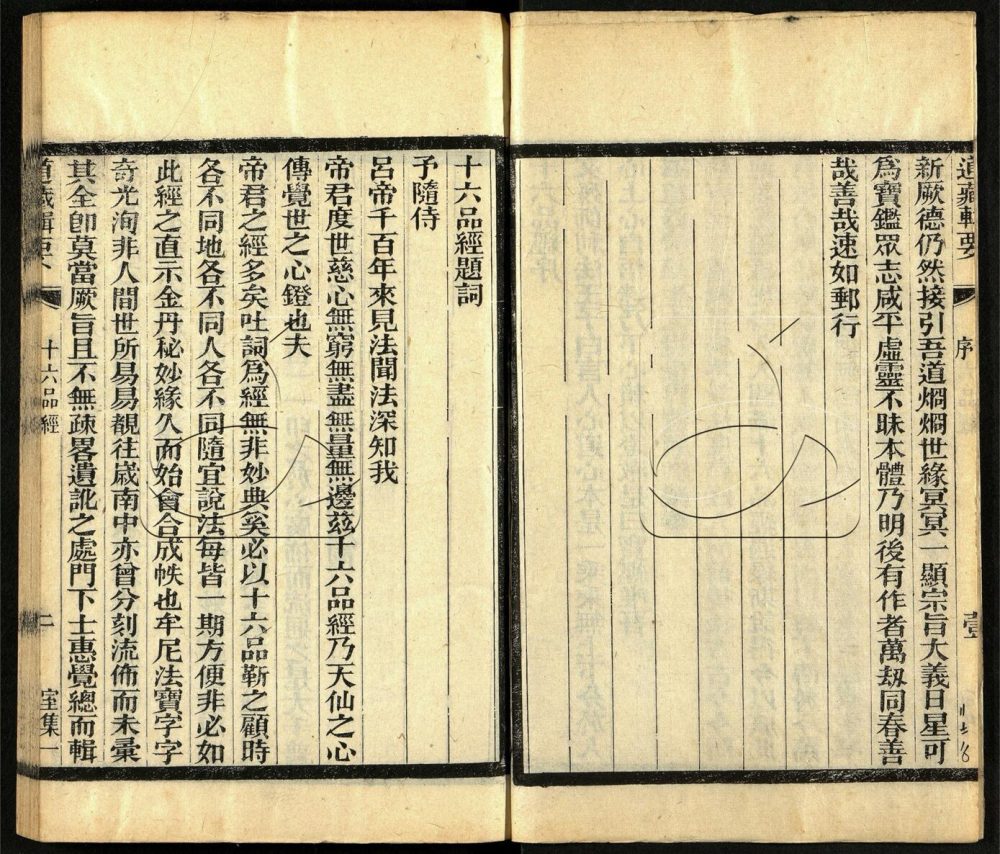 道藏輯要
序
壹
新厥德仍然接引吾道烱烱世緣冥冥一顯宗旨大義日星可
為寶鑑眾志咸平虛靈不昧本體乃明後有作者萬刼同春善
哉善哉速如郵行
十六品經題詞
予隨侍
呂帝千百年來見法聞法深知我
帝君度世慈心無窮無盡無量無邊茲十六品經乃天仙之心
傳覺世之心鐙也夫
帝君之經多矣吐詞為經無非妙典奚必以十六品靳之顧時
各不同地各不同人各不同隨宜說法每皆一期方便非必如
此經之直示金丹秘妙緣久而始會合成帙也牟尼法寶字字
奇光洵非人間世所易易覯往嵗南中亦曾分刻流佈而未彙
其全卽莫當厥旨且不無疎畧遺訛之處門下士惠覺總而輯
道藏輯要
十六品經
二
室集一